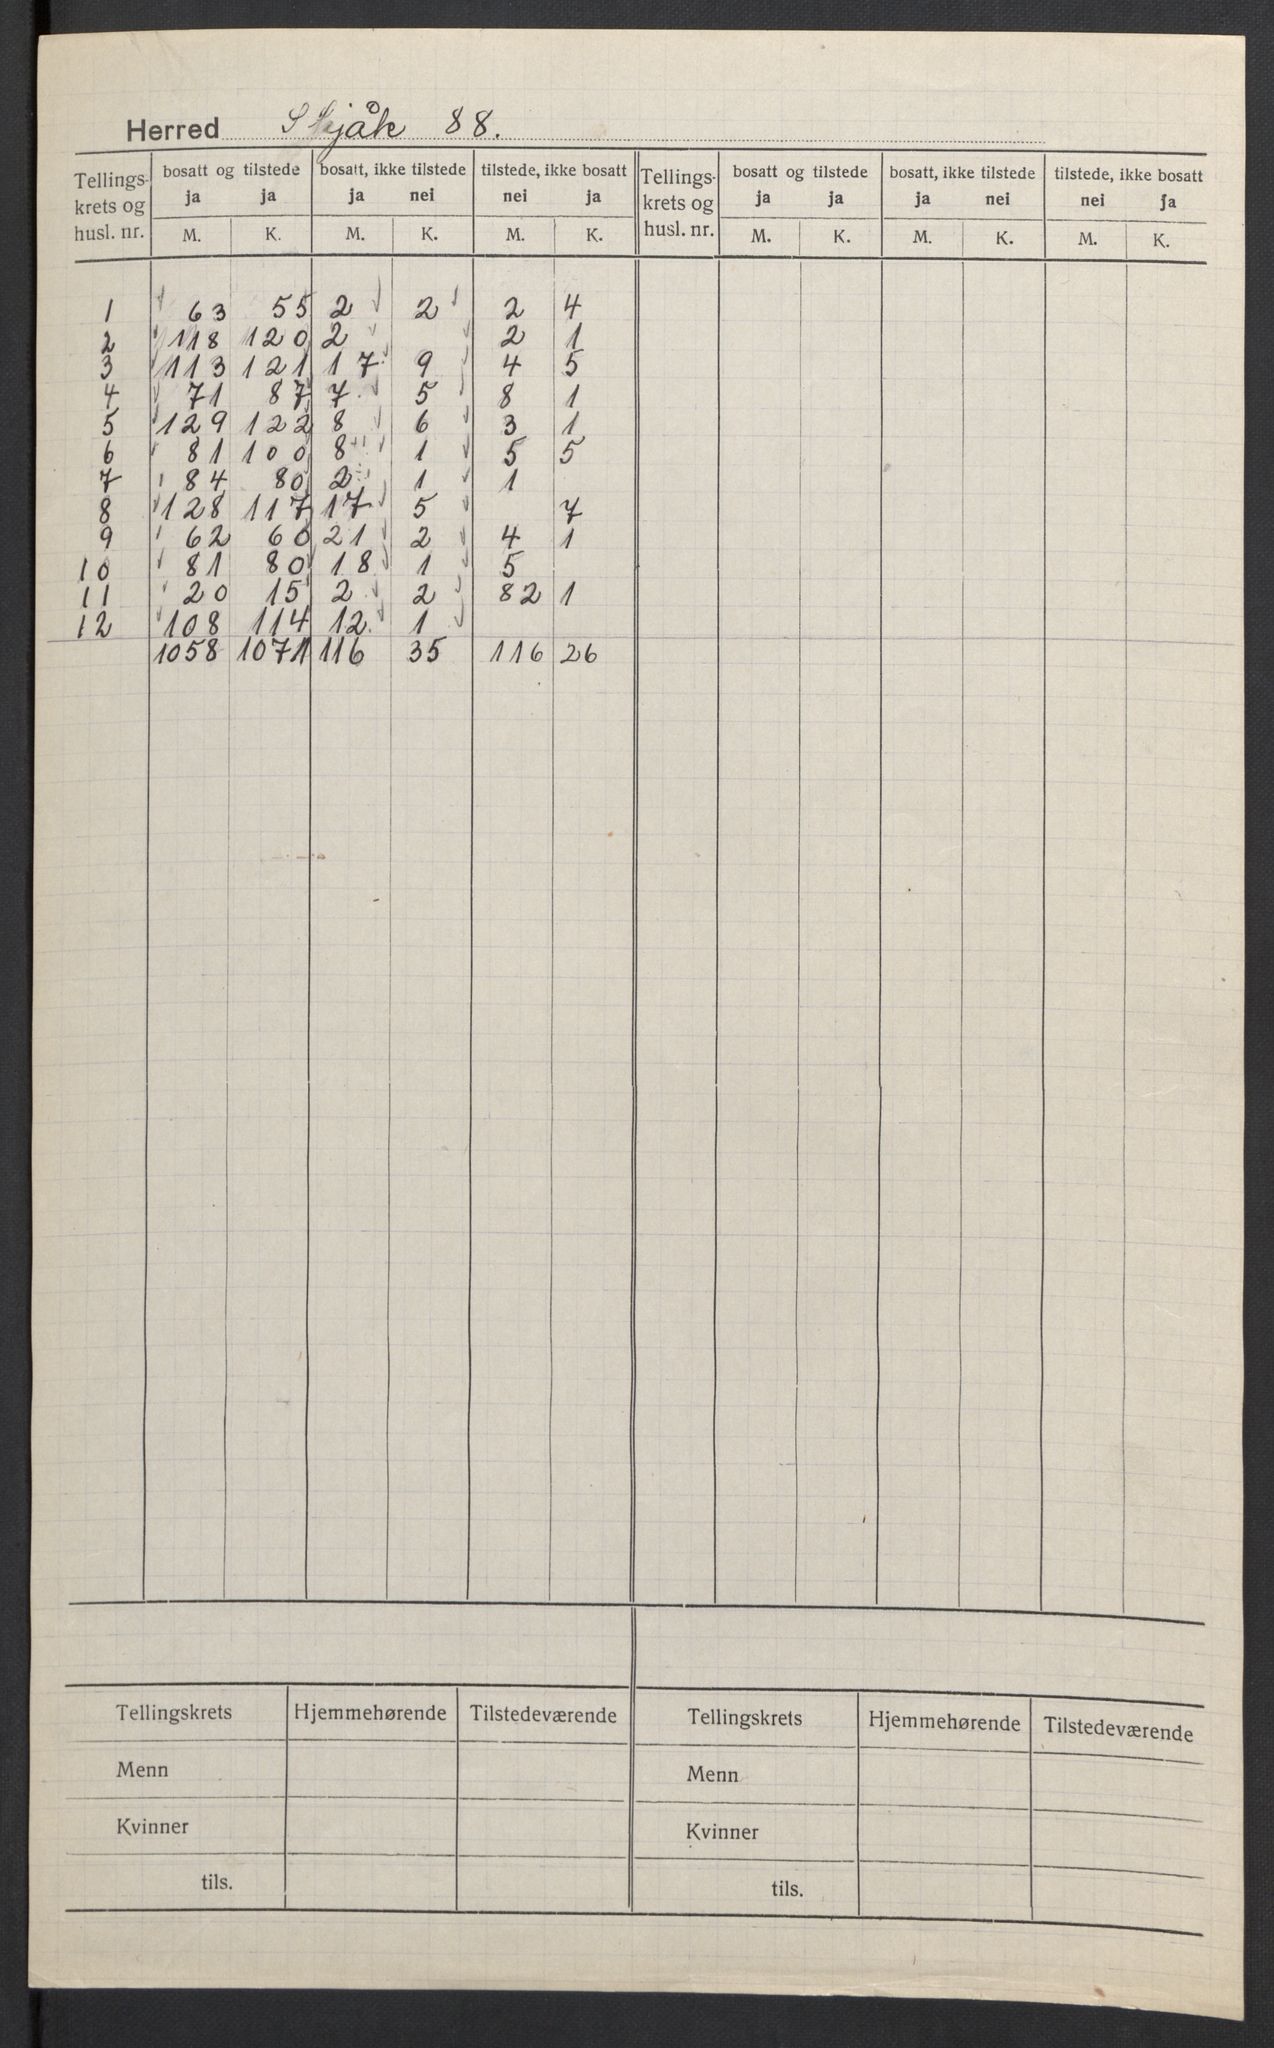 Herred Skjåk 88.
Tellings-krets og husl. nr. bosatt og tilstede bosatt, ikke tilstede tilstede, ikke bosatt Tellings-krets og husl. nr. bosatt og tilstede bosatt, ikke tilstede tilstede, ikke bosatt
ja ja ja nei nei ja ja ja ja nei nei ja
M. K. M. K. M. K. M. K. M. K. M. K.
1 63 55 2 2 2 4
2 118 120 2 2 1
3 113 121 17 9 4 5
4 71 87 7 5 8 1
5 129 122 8 6 3 1
6 81 100 8 1 5 5
7 84 80 2 1 1
8 128 117 17 5 7
9 62 60 21 2 4 1
10 81 80 18 1 5
11 20 15 2 2 82 1
12 108 114 12 1
1058 1071 116 35 116 26
Tellingskrets Hjemmehørende Tilstedeværende Tellingskrets Hjemmehørende Tilstedeværende
Menn Menn
Kvinner Kvinner
tils. tils.